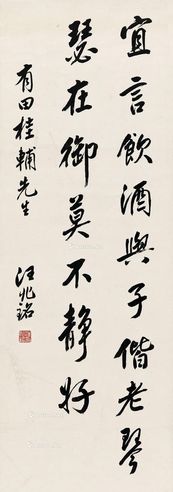 宜言飲酒與子偕老琴
瑟在御莫不静好
有田桂輔先生
汪兆銘